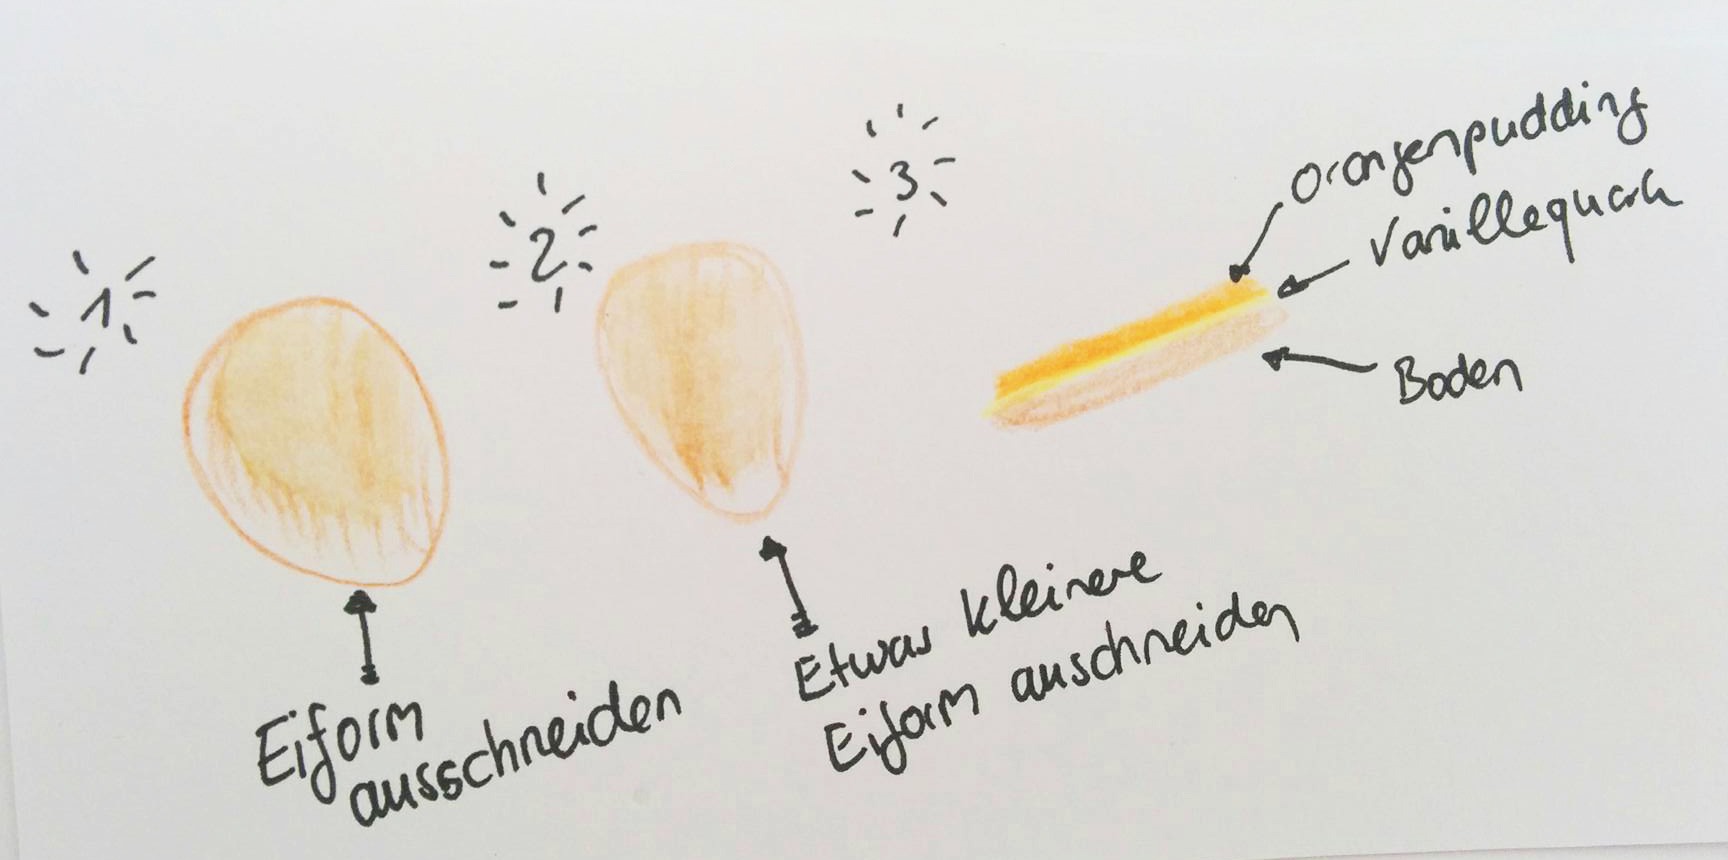 1
Eiform
ausschneiden
2
Etwas kleinere
Eiform auschneiden
3
Orangenpudding
Vanillequark
Boden